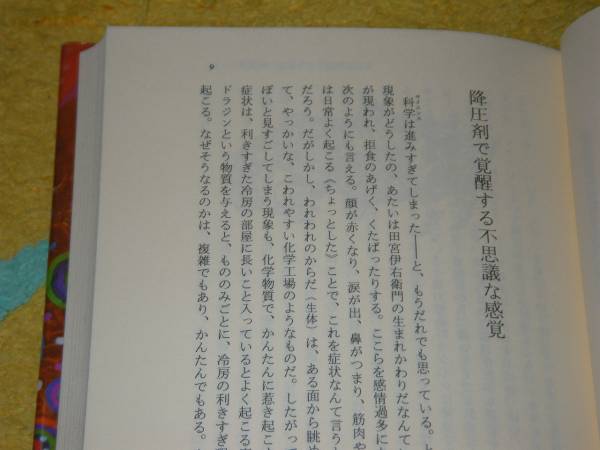 9
降圧剤で覚醒する不思議な感覚
サイエンス
科学は進みすぎてしまった——と、もうだれでも思っている。
現象がどうしたの、あたいは田宮伊右衛門の生まれかわりだなんて
が現われ、拒食のあげく、くたばったりする。ここらを感情過多に
次のようにも言える。顔が赤くなり、涙が出、鼻がつまり、筋肉や
は日常よく起こる《ちょっとした》ことで、これを症状なんて言う
だろう。だがしかし、われわれのからだ（生体）は、ある面から眺め
て、やっかいな、こわれやすい化学工場のようなものだ。したがって
ぽいと見すごしてしまう現象も、化学物質で、かんたんに惹き起こ
症状は、利きすぎた冷房の部屋に長いこと入っているとよく起こる
ドラジンという物質を与えると、もののみごとに、冷房の利きすぎ
起こる。なぜそうなるのかは、複雑でもあり、かんたんでもある。